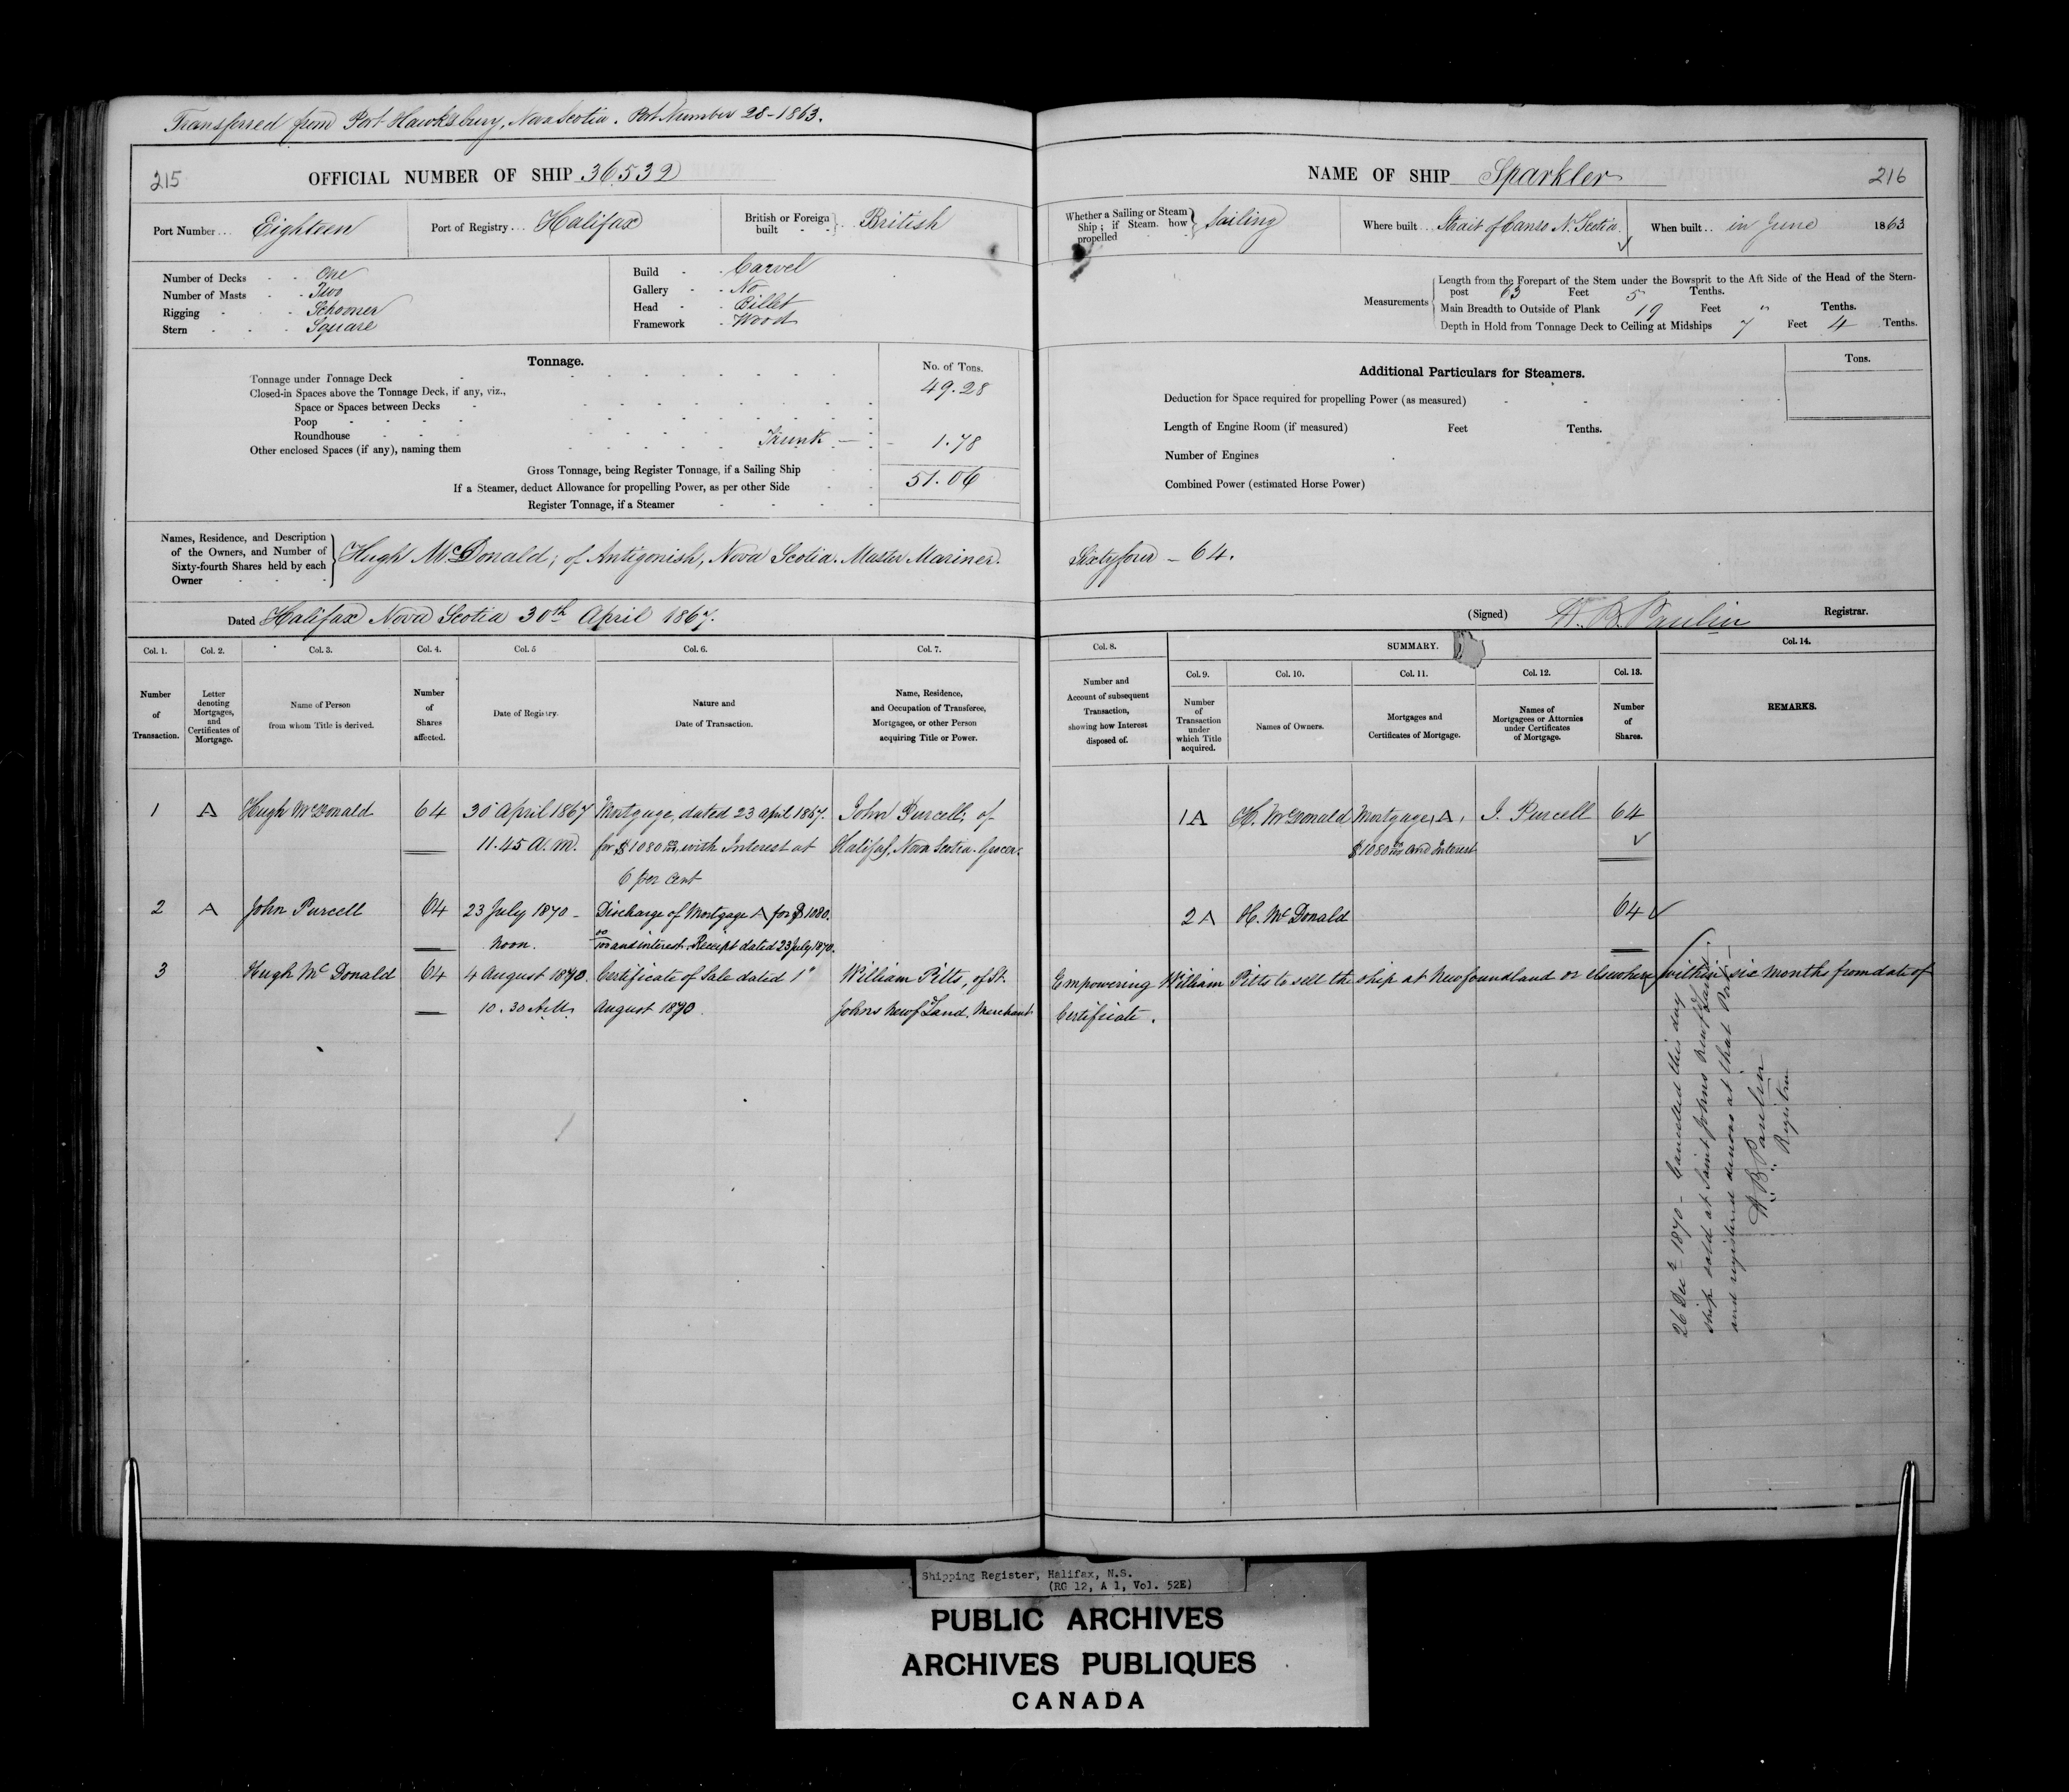 Transferred from Port Hawksbury, Nova Scotia. Port Number 28-1863.
215
OFFICIAL NUMBER OF SHIP 36532
Port Number... Eighteen
Port of Registry... Halifax
British or Foreign built - - } British
Number of Decks - - One
Number of Masts - - Two
Rigging - - - Schooner
Stern - - - Square
Build - - Carvel
Gallery - - No
Head - - Billet
Framework - Wood
Tonnage.
No. of Tons.
Tonnage under Tonnage Deck 49.28
Closed-in Spaces above the Tonnage Deck, if any, viz.,
Space or Spaces between Decks
Poop
Roundhouse
Other enclosed Spaces (if any), naming them Trunk 1.78
Gross Tonnage, being Register Tonnage, if a Sailing Ship 51.06
If a Steamer, deduct Allowance for propelling Power, as per other Side
Register Tonnage, if a Steamer
Names, Residence, and Description
of the Owners, and Number of
Sixty-fourth Shares held by each
Owner
Hugh McDonald, of Antigonish, Nova Scotia. Master Mariner.
Dated Halifax Nova Scotia 30th April 1867.
Col. 1. Col. 2. Col. 3. Col. 4. Col. 5 Col. 6. Col. 7.
Number of Transaction.
Letter denoting Mortgages, and Certificates of Mortgage.
Name of Person from whom Title is derived.
Number of Shares affected.
Date of Registry.
Nature and Date of Transaction.
Name, Residence, and Occupation of Transferee, Mortgagee, or other Person acquiring Title or Power.
1 A Hugh McDonald 64 30 April 1867 Mortgage, dated 23 April 1867. John Purcell, of
11.45 A.M. for $1080 00/100 with Interest at Halifax, Nova Scotia. Grocer.
6 per cent
2 A John Purcell 64 23 July 1870 - Discharge of Mortgage A for $1080.
Noon. 00/100 and interest. Receipt dated 23 July 1870.
3 Hugh Mc Donald 64 4 August 1870. Certificate of Sale dated 1st William Pitts, of St.
10.30 A.M. August 1870. Johns Newfd Land. Merchant
NAME OF SHIP Sparkler
216
Whether a Sailing or Steam Ship; if Steam. how propelled } Sailing
Where built... Strait of Canso N. Scotia.
When built.. in June 1863
Measurements
Length from the Forepart of the Stem under the Bowsprit to the Aft Side of the Head of the Stern-
post 63 Feet 5 Tenths.
Main Breadth to Outside of Plank 19 Feet " Tenths.
Depth in Hold from Tonnage Deck to Ceiling at Midships 7 Feet 4 Tenths.
Tons.
Additional Particulars for Steamers.
Deduction for Space required for propelling Power (as measured)
Length of Engine Room (if measured) Feet Tenths.
Number of Engines
Combined Power (estimated Horse Power)
Sixty four - 64.
(Signed) H. B. Paulin Registrar.
Col. 8. SUMMARY. Col. 14.
Col. 9. Col. 10. Col. 11. Col. 12. Col. 13.
Number and Account of subsequent Transaction, showing how Interest disposed of.
Number of Transaction under which Title acquired.
Names of Owners.
Mortgages and Certificates of Mortgage.
Names of Mortgagees or Attornies under Certificates of Mortgage.
Number of Shares.
REMARKS.
1 A H. McDonald Mortgage, A, J. Purcell 64
$1080 00/100 and Interest
2 A H. Mc Donald 64
Empowering William Pitts to sell the ship at Newfoundland or elsewhere within six months from date of
Certificate.
26 Dec 1870 - Cancelled this day
Ship sold at Saint Johns Newfd Land
and registered denovo at that Port.
H. B. Paulin
Registrar
Shipping Register, Halifax, N.S.
(RG 12, A 1, Vol. 52E)
PUBLIC ARCHIVES
ARCHIVES PUBLIQUES
CANADA